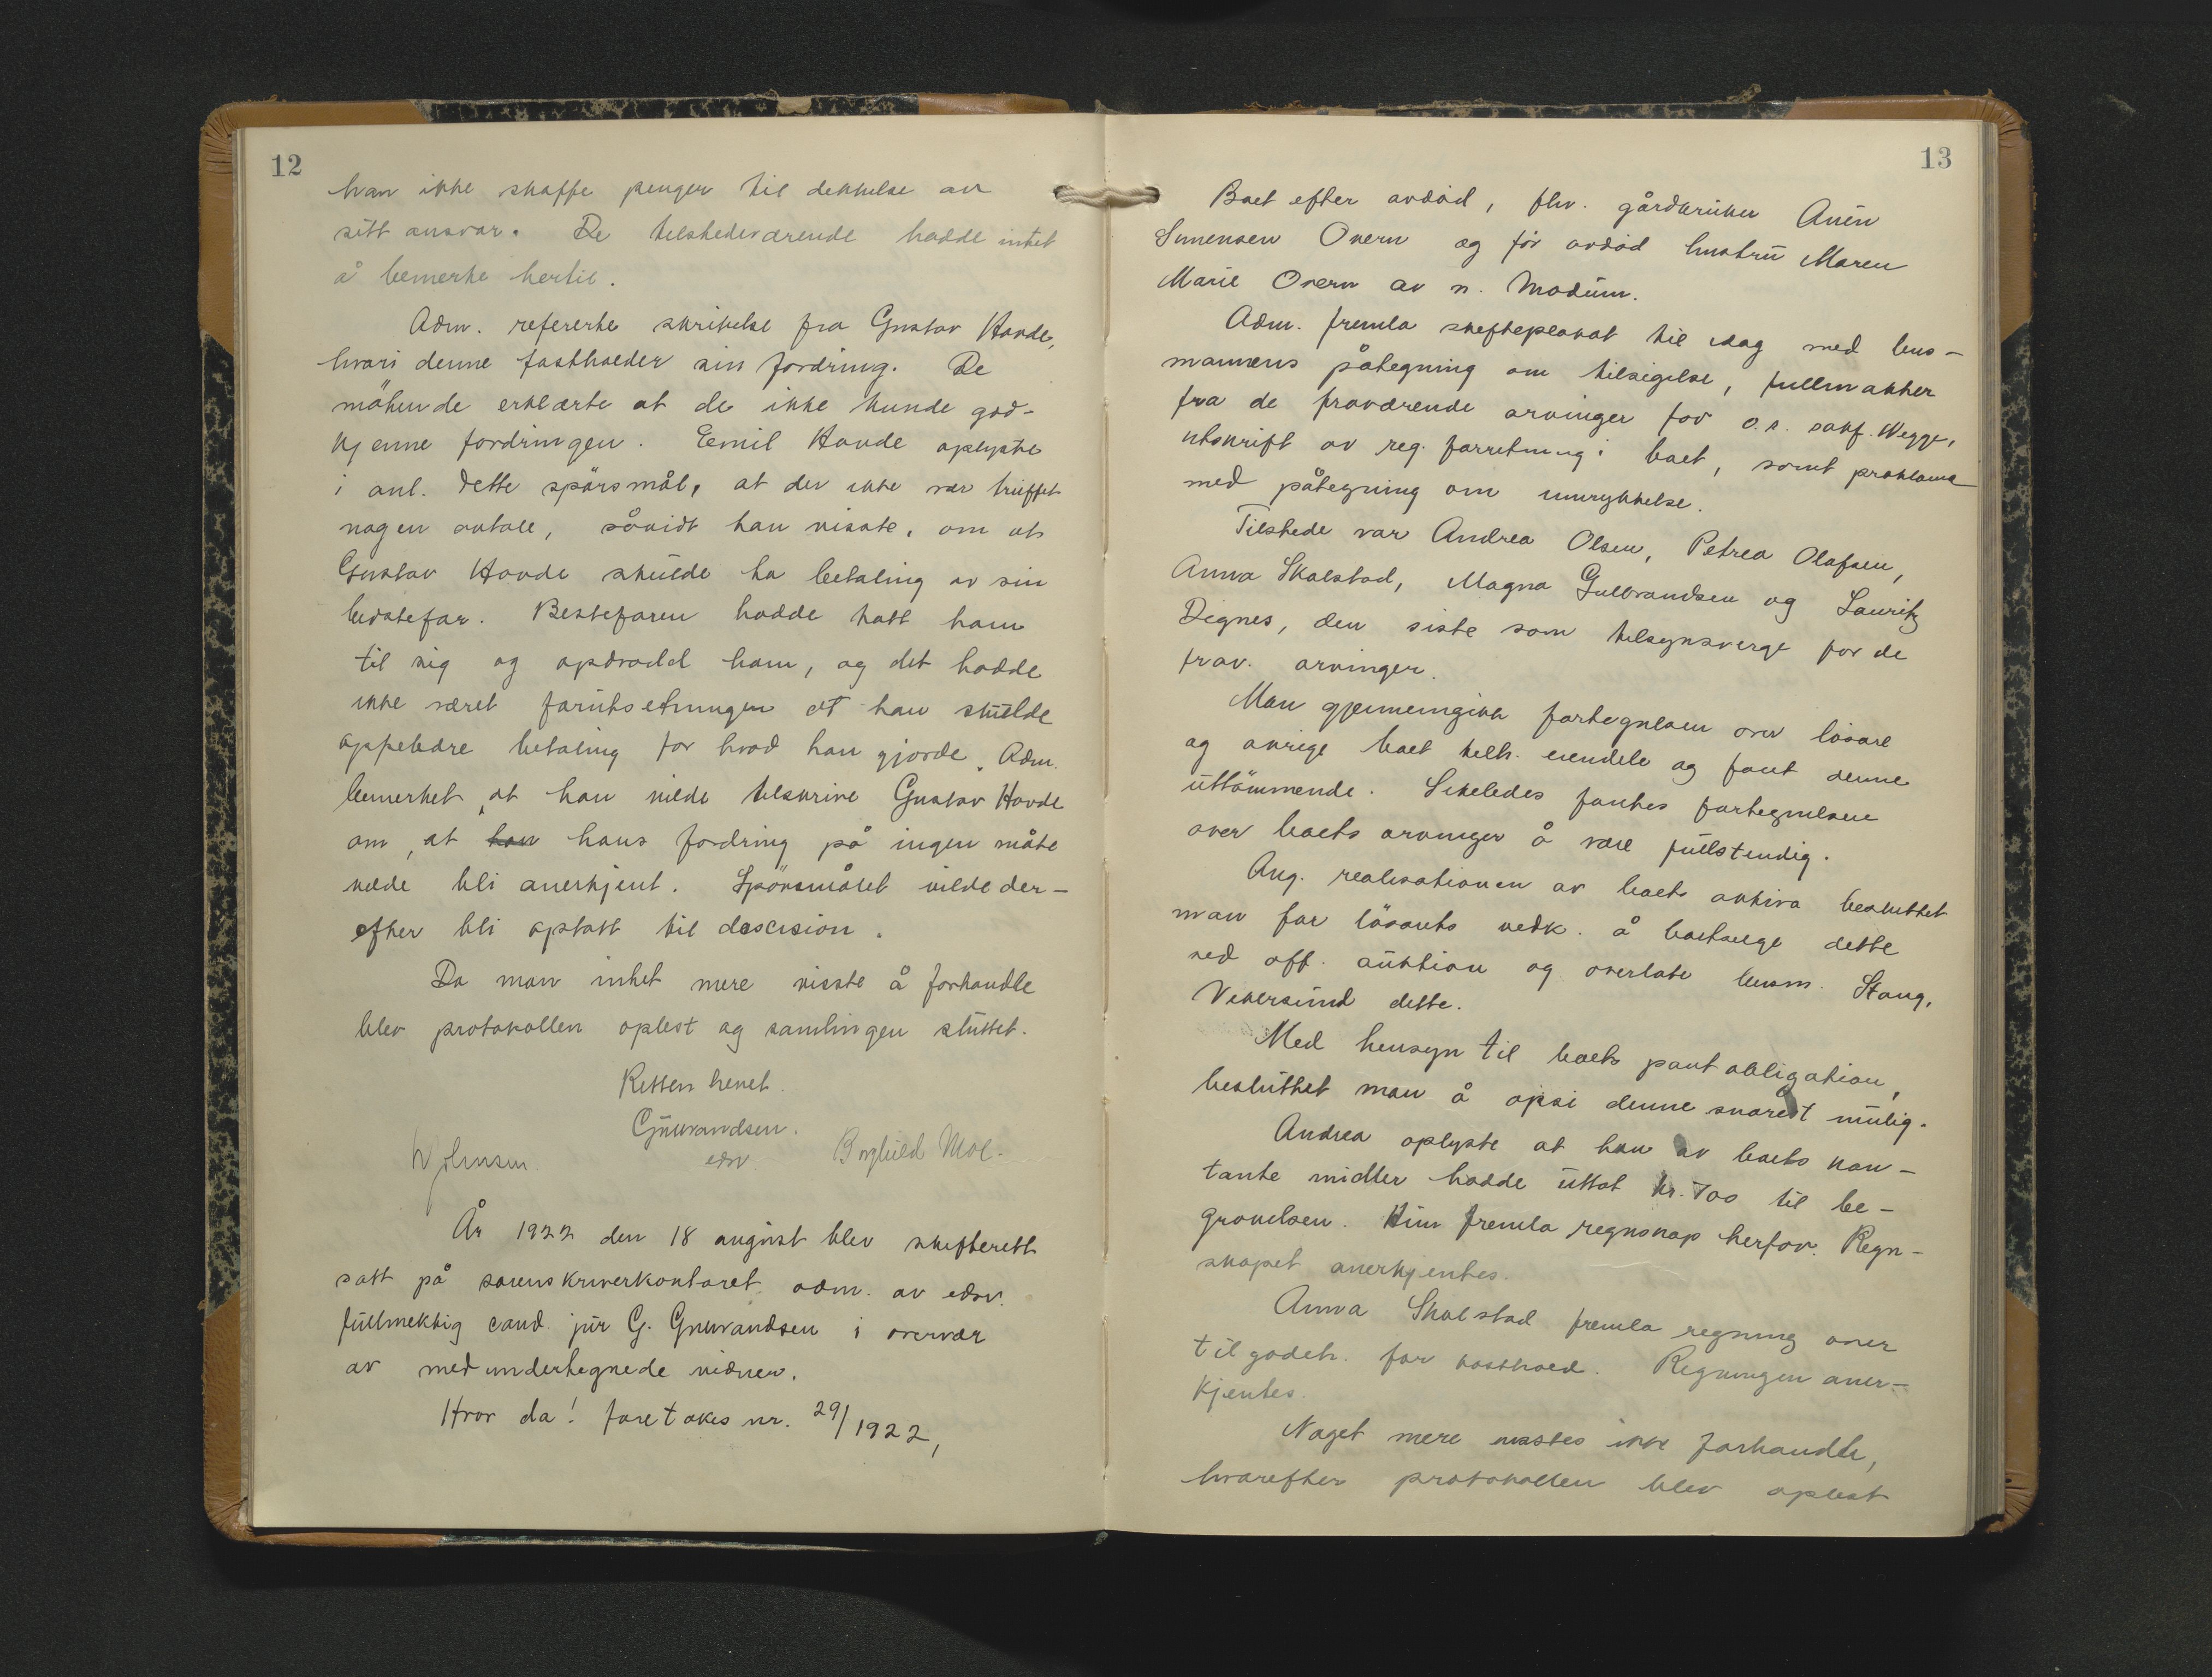 12
kan ikke skaffe penger til dekkelse av
sitt ansvar. De tilstedeværende hadde intet
å bemerke hertil.
Adm. refererte skrivelse fra Gustav Hovde,
hvori denne fastholder sin fordring. De
møtende erklærte at de ikke kunde god-
kjenne fordringen. Emil Hovde oplyste
i anl. dette spørsmål, at der ikke var truffet
nogen avtale, såvidt han visste, om at
Gustav Hovde skulde ha betaling av sin
bedstefar. Bestefaren hadde hatt ham
til sig og opdradd ham, og det hadde
ikke været forutsetningen at han skulde
oppebære betaling for hvad han gjorde. Adm.
bemerket, at han vilde tilskrive Gustav Hovde
om, at han hans fordring på ingen måte
vilde bli anerkjent. Spørsmålet vilde der-
efter bli optatt til descision.
Da man intet mere visste å forhandle
blev protokollen oplest og samlingen sluttet.
Retten hevet.
Gulbrandsen.
edsv.
Borghild Moe.
År 1922 den 18 august blev skifterett
satt på sorenskriverkontoret adm. av edsv.
fullmektig cand. jur G. Gulbrandsen i overvær
av medundertegnede vidner.
Hvor da! foretokes nr. 29/1922,
13
Boet efter avdød, fhv. gårdbruker Auen
Simensen Overn og før avdød hustru Maren
Marie Overn av n. Modum.
Adm. fremla skifteplakat til idag med lens-
mannens påtegning om tilsigelse, fullmakter
fra de fraværende arvinger for o.r. sakf. Wegge,
utskrift av reg. forretning i boet, samt proklama
med påtegning om innrykkelse.
Tilstede var Andrea Olsen, Petrea Olafsen,
Anna Skalstad, Magna Gulbrandsen og Lauritz
Dignes, den siste som tilsynsverge for de
frav. arvinger.
Man gjennemgikk fortegnelsen over løsøre
og øvrige boet tilh. eiendele og fant denne
uttømmende. Likeledes fantes fortegnelsen
over boets arvinger å være fullstendig.
Ang. realisationen av boets aktiva besluttet
man for løsørets vedk. å bortselge dette
ved off. auktion og overlate lensm. Stang,
Vikersund dette.
Med hensyn til boets pantobligation,
besluttet man å opsi denne snarest mulig.
Andrea oplyste at hun av boets kon-
tante midler hadde uttat kr. 700 til be-
gravelsen. Hun fremla regnskap herfor. Regn-
skapet anerkjentes.
Anna Skalstad fremla regning over
tilgodeh. for kosthold. Regningen aner-
kjentes.
Noget mere visstes ikke forhandlet,
hvorefter protokollen blev oplest